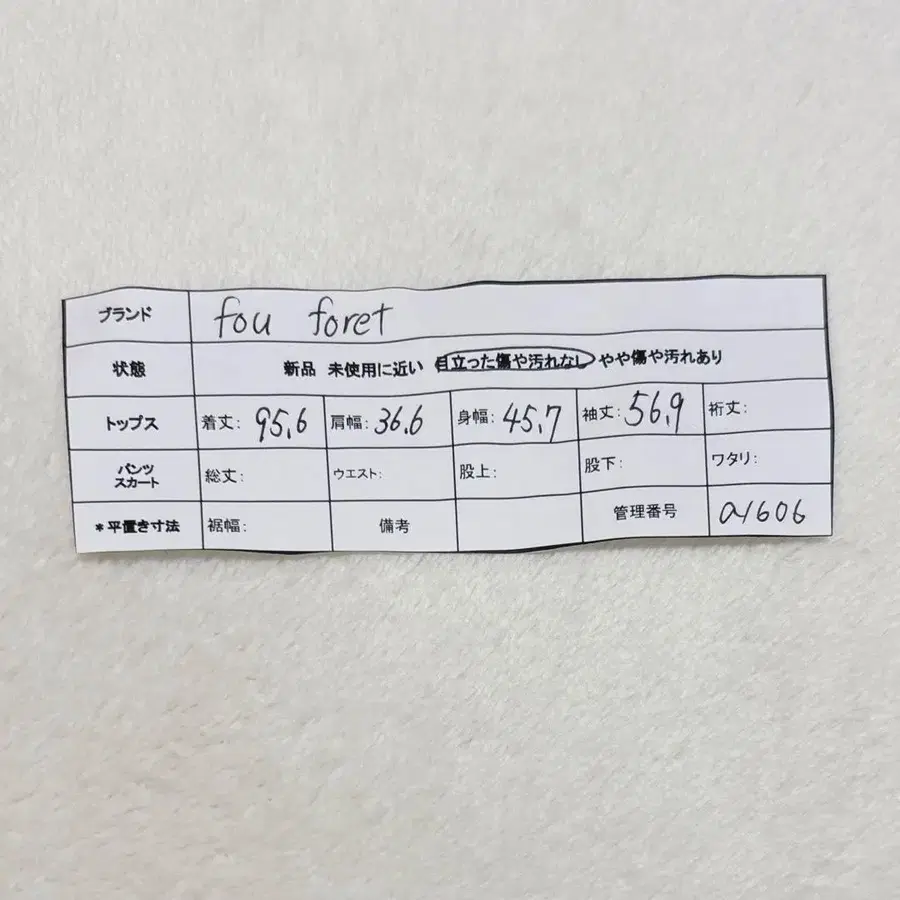 ブランド fou foret
状態 新品 未使用に近い 目立った傷や汚れなし やや傷や汚れあり
トップス 着丈: 95.6 肩幅: 36.6 身幅: 45.7 袖丈: 56.9 裄丈:
パンツ
スカート 総丈: ウエスト: 股上: 股下: ワタリ:
*平置き寸法 裾幅: 備考 管理番号 a1606